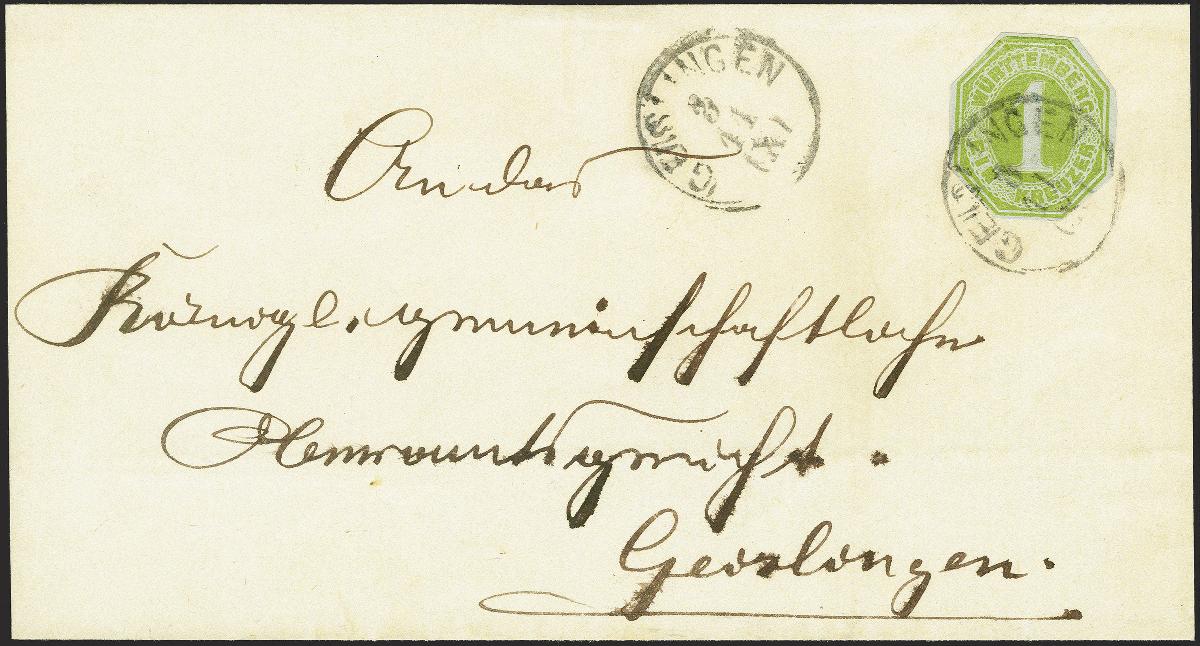 GEISLINGEN
8 11
WÜRTTEMBERG
1
KREUZER
GEISLINGEN
An das
Königl. gemeinschaftliche
Oberamtsgericht.
Geislingen.